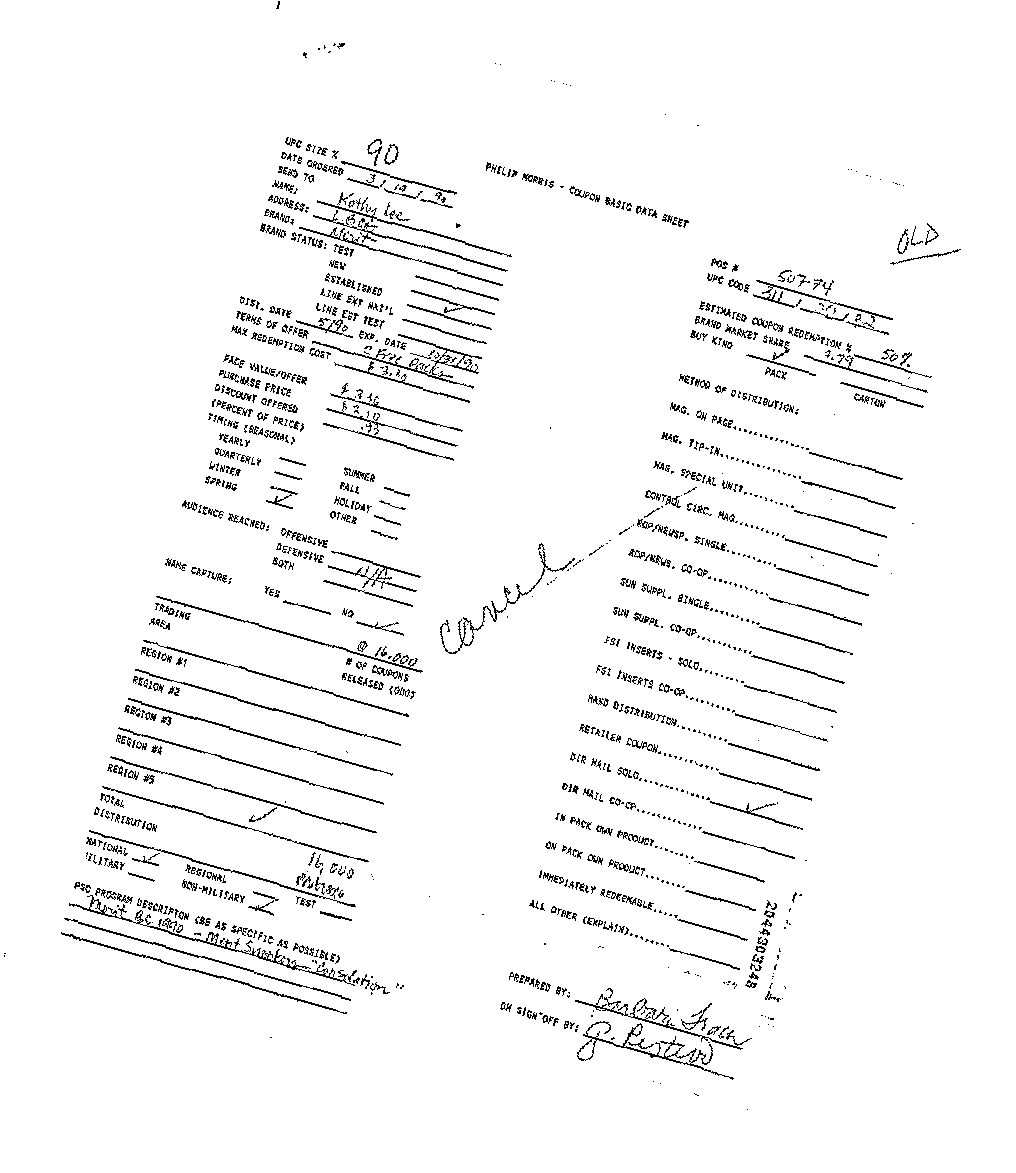 PHILIP MORRIS - COUPON BASIC DATA SHEET
OLD
UPC SIZE % 90
DATE ORDERED 3/19/90
SEND TO
NAME: Kathy Lee
ADDRESS:
BRAND: Merit
BRAND STATUS: TEST
NEW
ESTABLISHED ✓
LINE EXT NAT'L
LINE EXT TEST
DIST. DATE 5/90 EXP. DATE
TERMS OF OFFER 2 Free Packs
MAX REDEMPTION COST
FACE VALUE/OFFER
PURCHASE PRICE
DISCOUNT OFFERED
(PERCENT OF PRICE)
TIMING (SEASONAL)
YEARLY SUMMER
QUARTERLY FALL
WINTER HOLIDAY
SPRING ✓ OTHER
AUDIENCE REACHED: OFFENSIVE
DEFENSIVE
BOTH N/A
NAME CAPTURE: YES NO ✓
TRADING AREA
@ 16,000
# OF COUPONS
RELEASED (000)
REGION #1
REGION #2
REGION #3
REGION #4
REGION #5
TOTAL
DISTRIBUTION ✓ 16,000
NATIONAL ✓ REGIONAL TEST
MILITARY NON-MILITARY ✓
PSC PROGRAM DESCRIPTON (BE AS SPECIFIC AS POSSIBLE)
Merit 1990 - Merit Smokers - "Consolation"
Cancel
POS # 50774
UPC CODE
ESTIMATED COUPON REDEMPTION % 50%
BRAND MARKET SHARE 3.79
BUY KIND ✓ PACK CARTON
METHOD OF DISTRIBUTION:
MAG. ON PAGE
MAG. TIP-IN
MAG. SPECIAL UNIT
CONTROL CIRC. MAG.
ROP/NEWSP. SINGLE
ROP/NEWS. CO-OP
SUN SUPPL. SINGLE
SUN SUPPL. CO-OP
FSI INSERTS - SOLO
FSI INSERTS CO-OP
HAND DISTRIBUTION
RETAILER COUPON
DIR MAIL SOLO ✓
DIR MAIL CO-OP
IN PACK OWN PRODUCT
ON PACK OWN PRODUCT
IMMEDIATELY REDEEMABLE
ALL OTHER (EXPLAIN)
PREPARED BY: Barbara
DM SIGN OFF BY:
2044303248